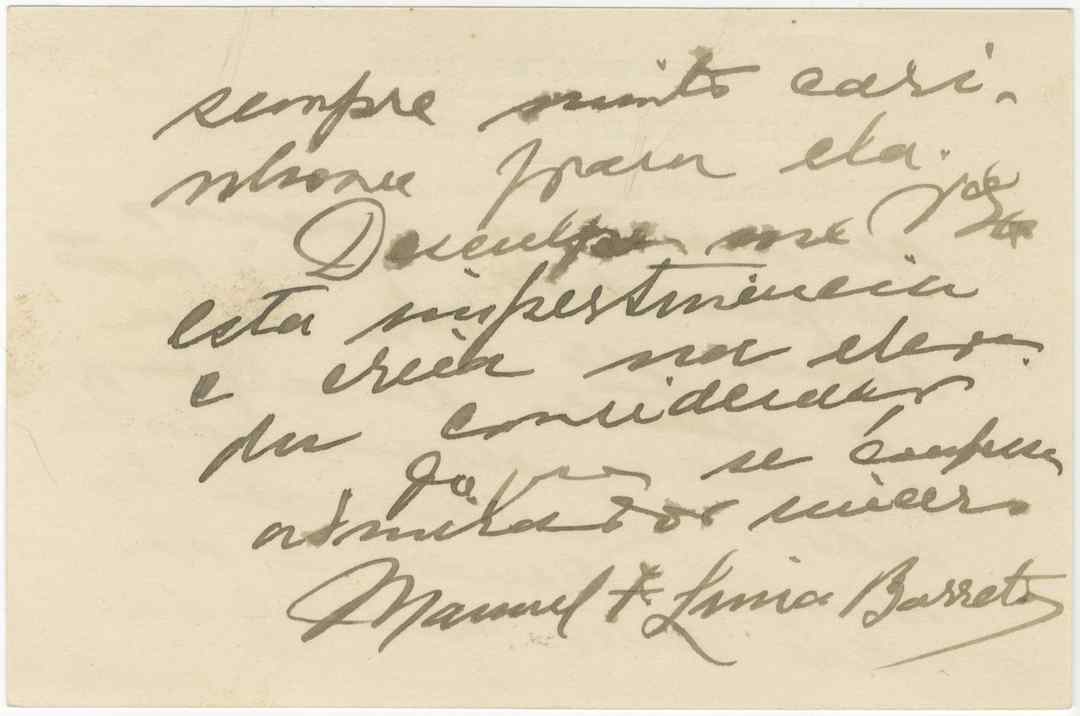 sempre muito cari-
nhosa para ela.
Desculpe me V. Exa
esta impertinencia
e creia na eleva
da consideração
de sempre
admirador sincero
Manuel F. Lima Barreto